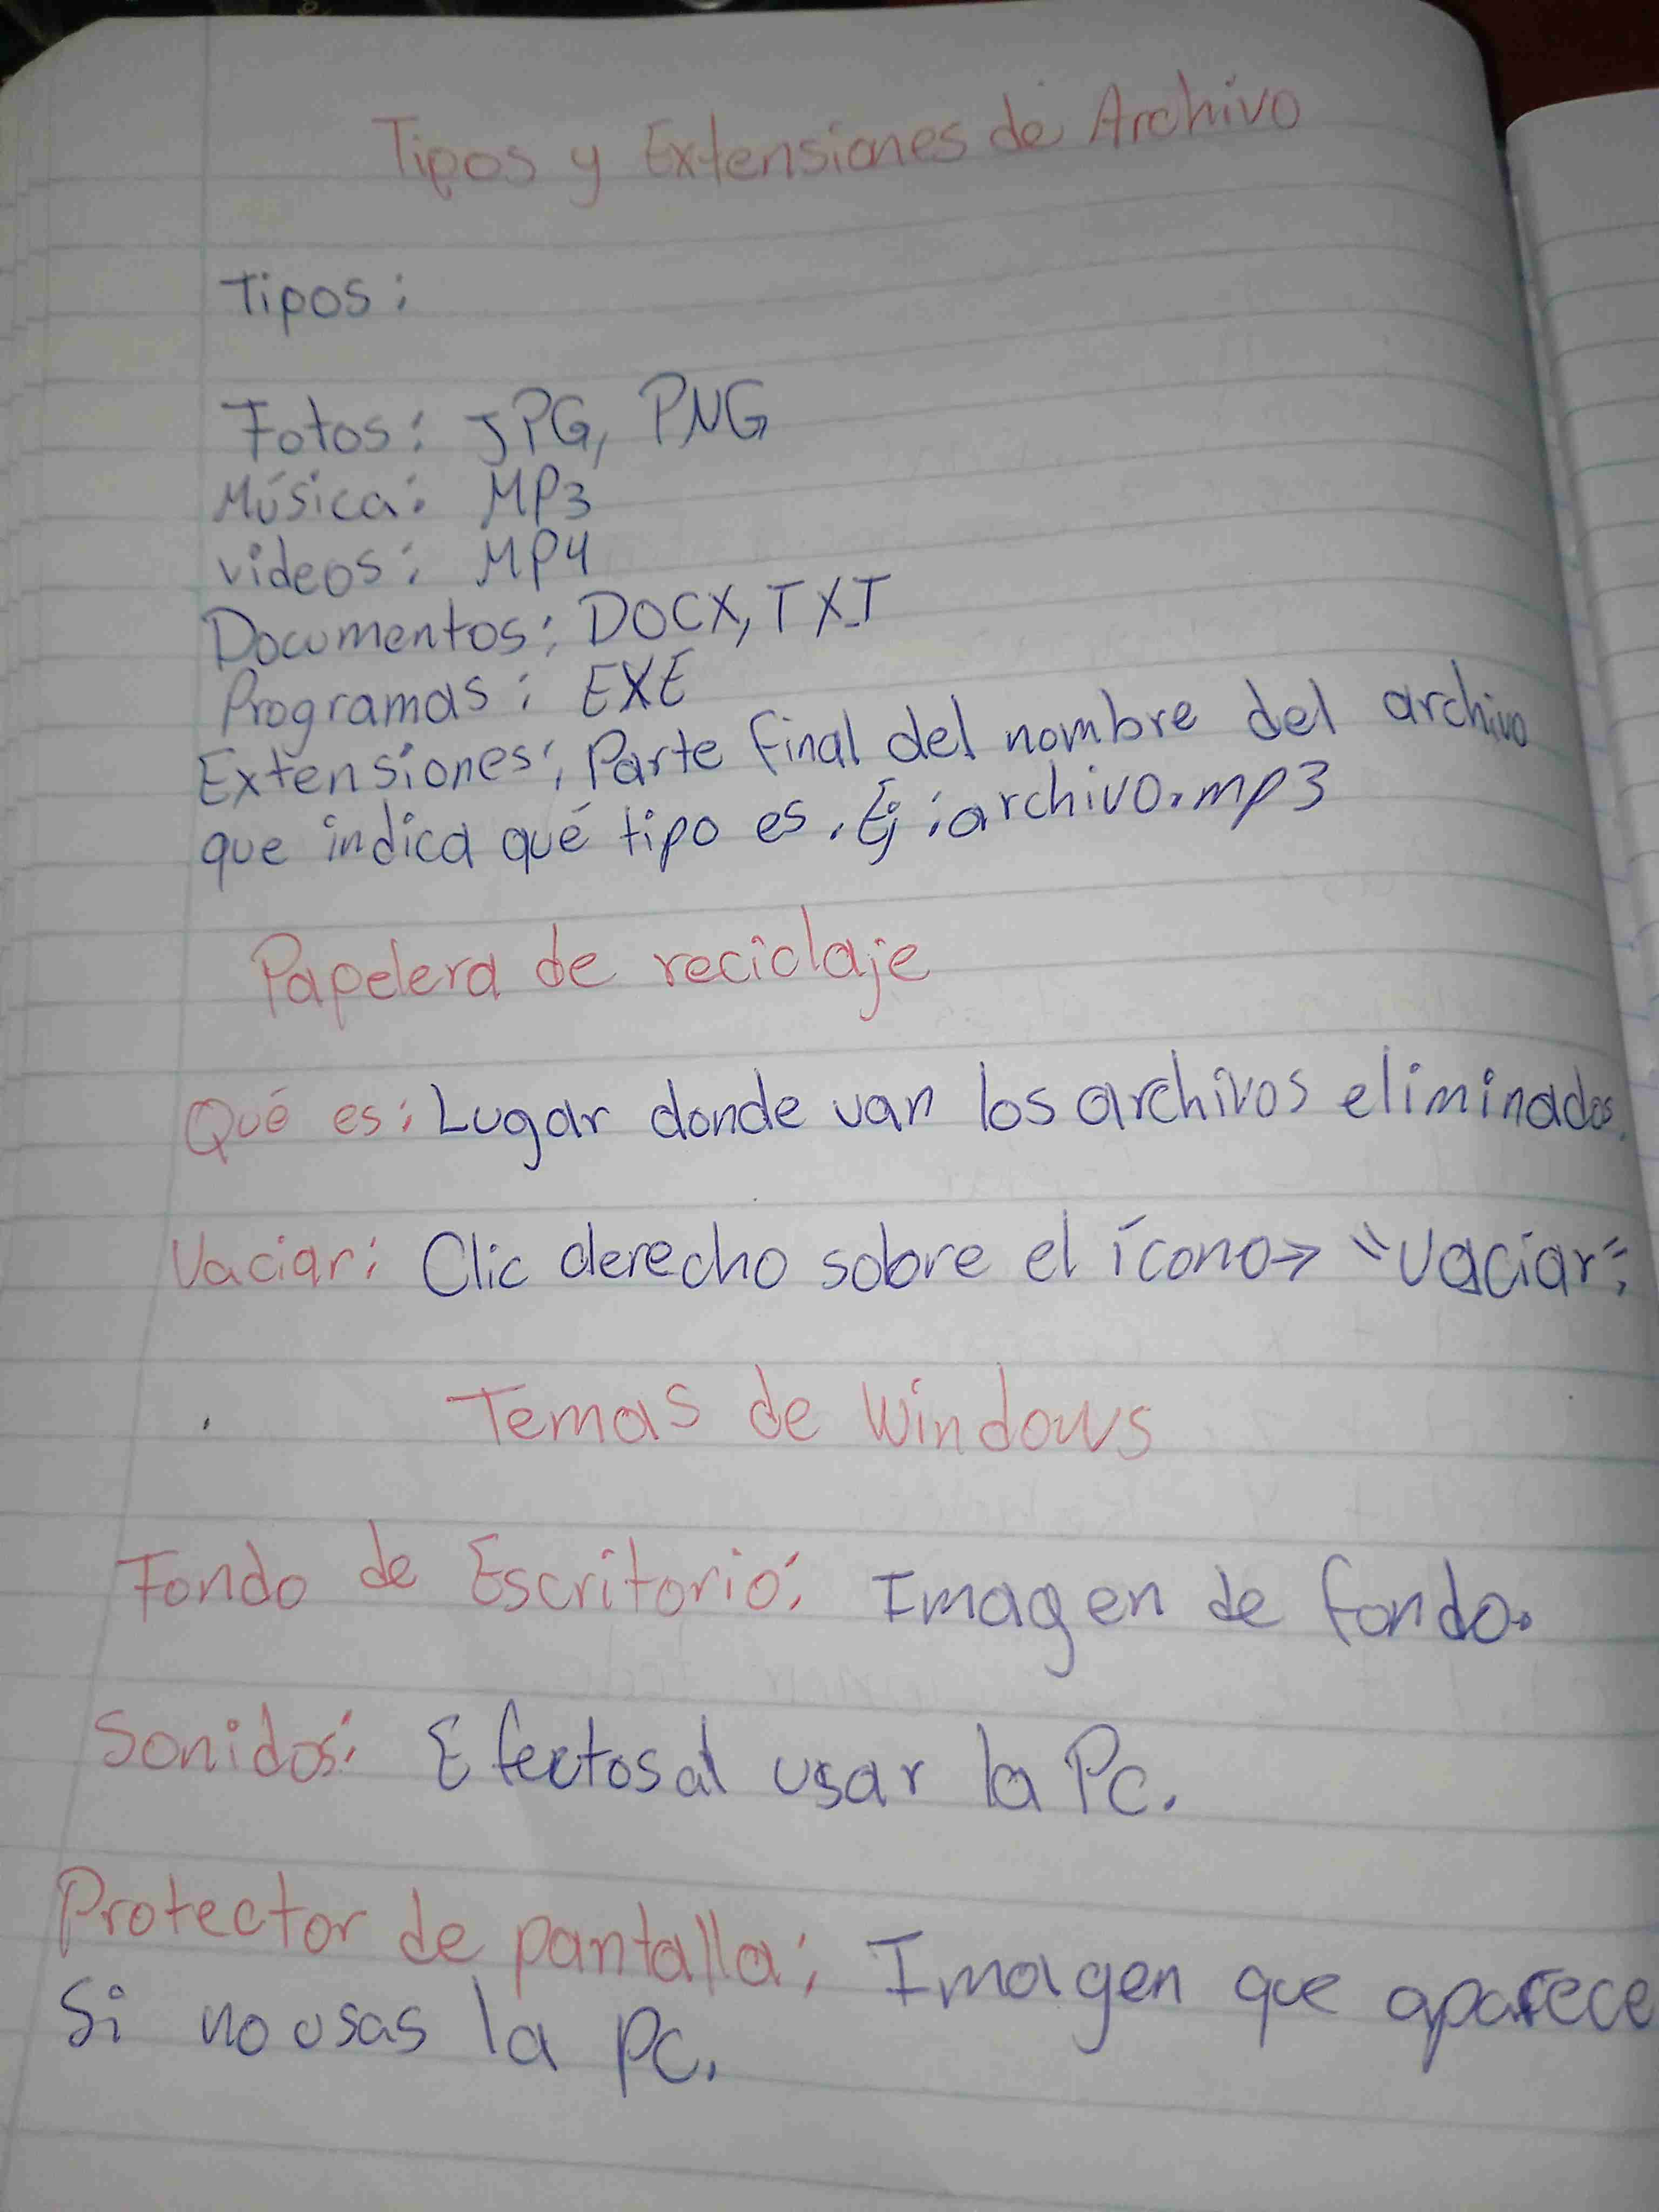 Tipos y Extensiones de Archivo
Tipos:
Fotos: JPG, PNG
Música: MP3
videos: MP4
Documentos: DOCX, TXT
Programas: EXE
Extensiones: Parte final del nombre del archivo
que indica qué tipo es. Ej: archivo.mp3
Papelera de reciclaje
Qué es: Lugar donde van los archivos eliminados.
Vaciar: Clic derecho sobre el ícono→ "Vaciar".
Temas de Windows
Fondo de Escritorio: Imagen de fondo.
Sonidos: Efectos al usar la Pc.
Protector de pantalla: Imagen que aparece
Si no usas la PC.